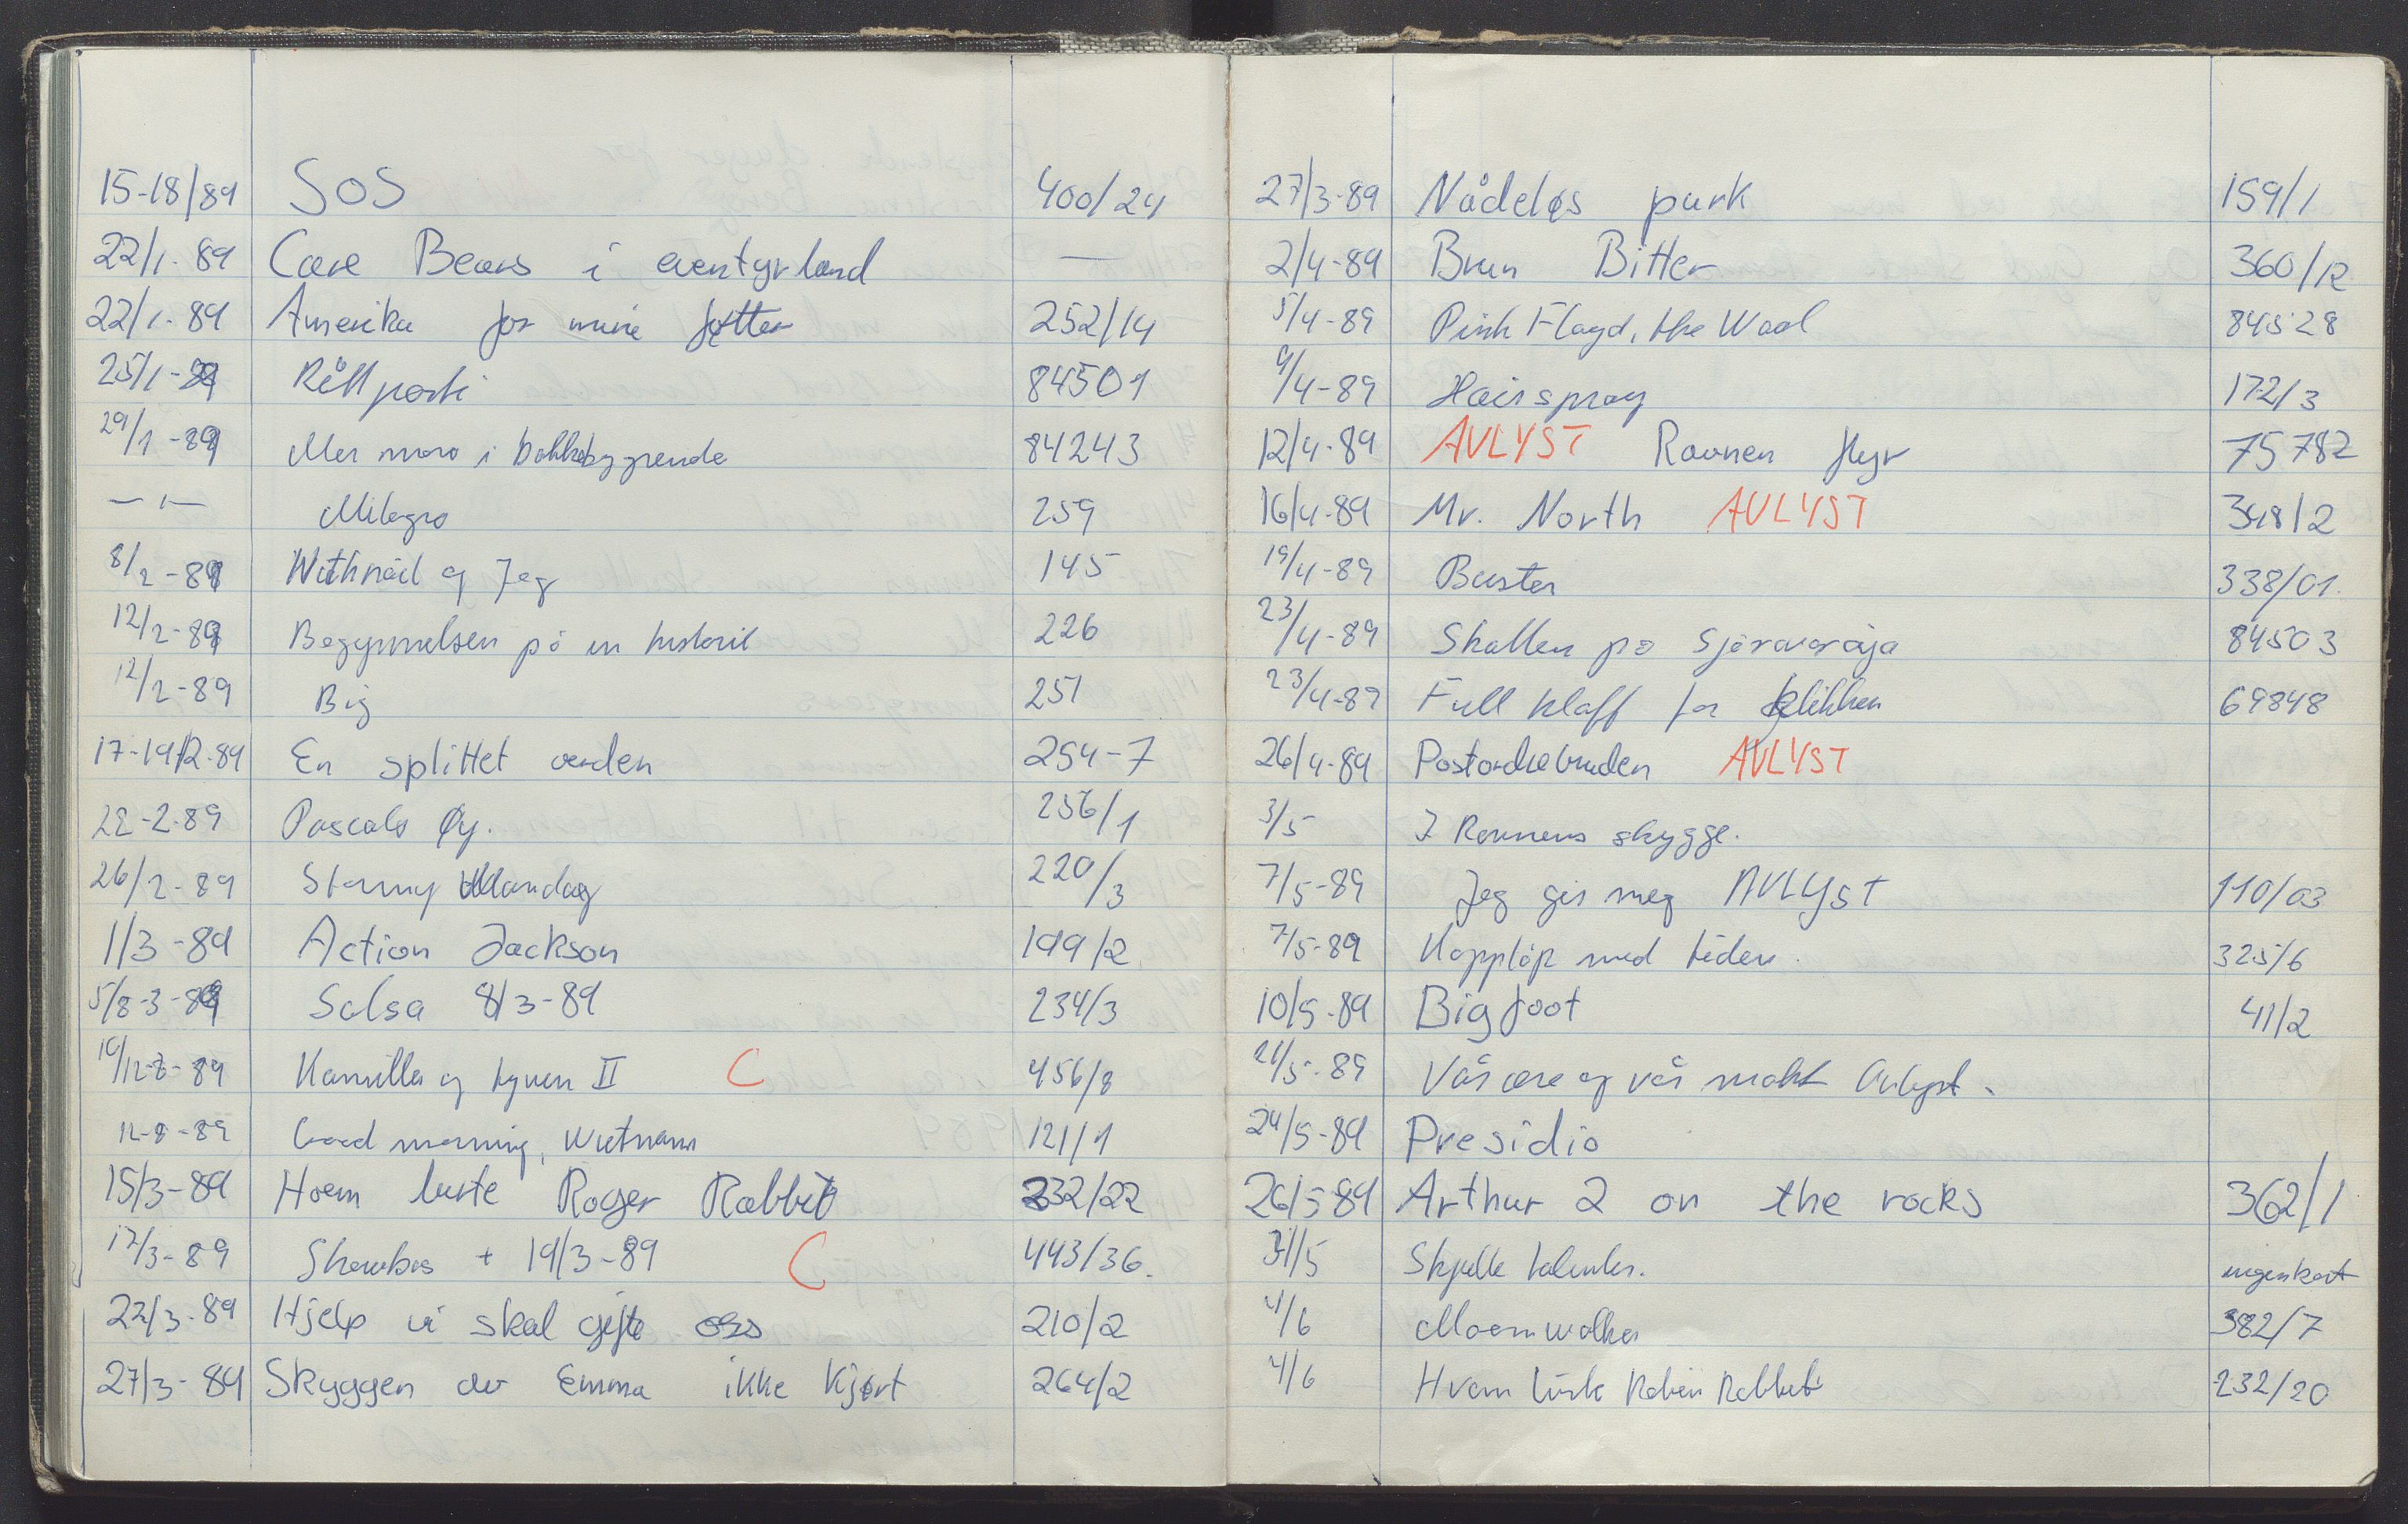 15-18/89 SOS 400/24
22/1-89 Care Bears i eventyrland —
22/1-89 Amerika for mine føtter 252/14
25/1-89 Råttparti 84501
29/1-89 Mer moro i bakkebygrende 84243
— 1 — Milagro 259
8/2-89 Withnail og Jeg 145
12/2-89 Begynnelsen på en historie 226
12/2-89 Big 251
17-19/2-89 En splittet verden 254-7
22-2-89 Pascals Øy. 256/1
26/2-89 Stormy Mandag 220/3
1/3-89 Action Jackson 199/2
5/8-3-89 Salsa 8/3-89 234/3
Kamilla og tyven II C 456/8
Good morning, Wietnam 121/1
15/3-89 Hvem lurte Roger Rabbit 232/22
17/3-89 + 19/3-89 C 443/36.
22/3-89 Hjelp vi skal gifte oss 210/2
27/3-89 Skyggen av Emma ikke kjørt 264/2
27/3-89 Nådeløs purk 159/1
2/4-89 Brun Bitter 360/12
5/4-89 Pink Floyd, the Waal 84528
9/4-89 Hairspray 172/3
12/4-89 AVLYST Ravnen flyr 75782
16/4-89 Mr. North AVLYST 348/2
19/4-89 Buster 338/01.
23/4-89 Skatten på Sjørøverøya 84503
23/4-89 Full klaff for blikken 69848
26/4-89 Postordrebruden AVLYST
3/5 I Ravnens skygge.
7/5-89 Jeg gir meg AVLYST 110/03
7/5-89 Kappløp med tiden. 325/6
10/5-89 Bigfoot 41/2
21/5-89 Vår ære og vår makt Avlyst.
24/5-89 Presidio
26/5-89 Arthur 2 on the rocks 362/1
31/5 Skjulte talenter. ingen kort
4/6 Moonwalker 382/7
4/6 Hvem lurte Robin Rabbit 232/20